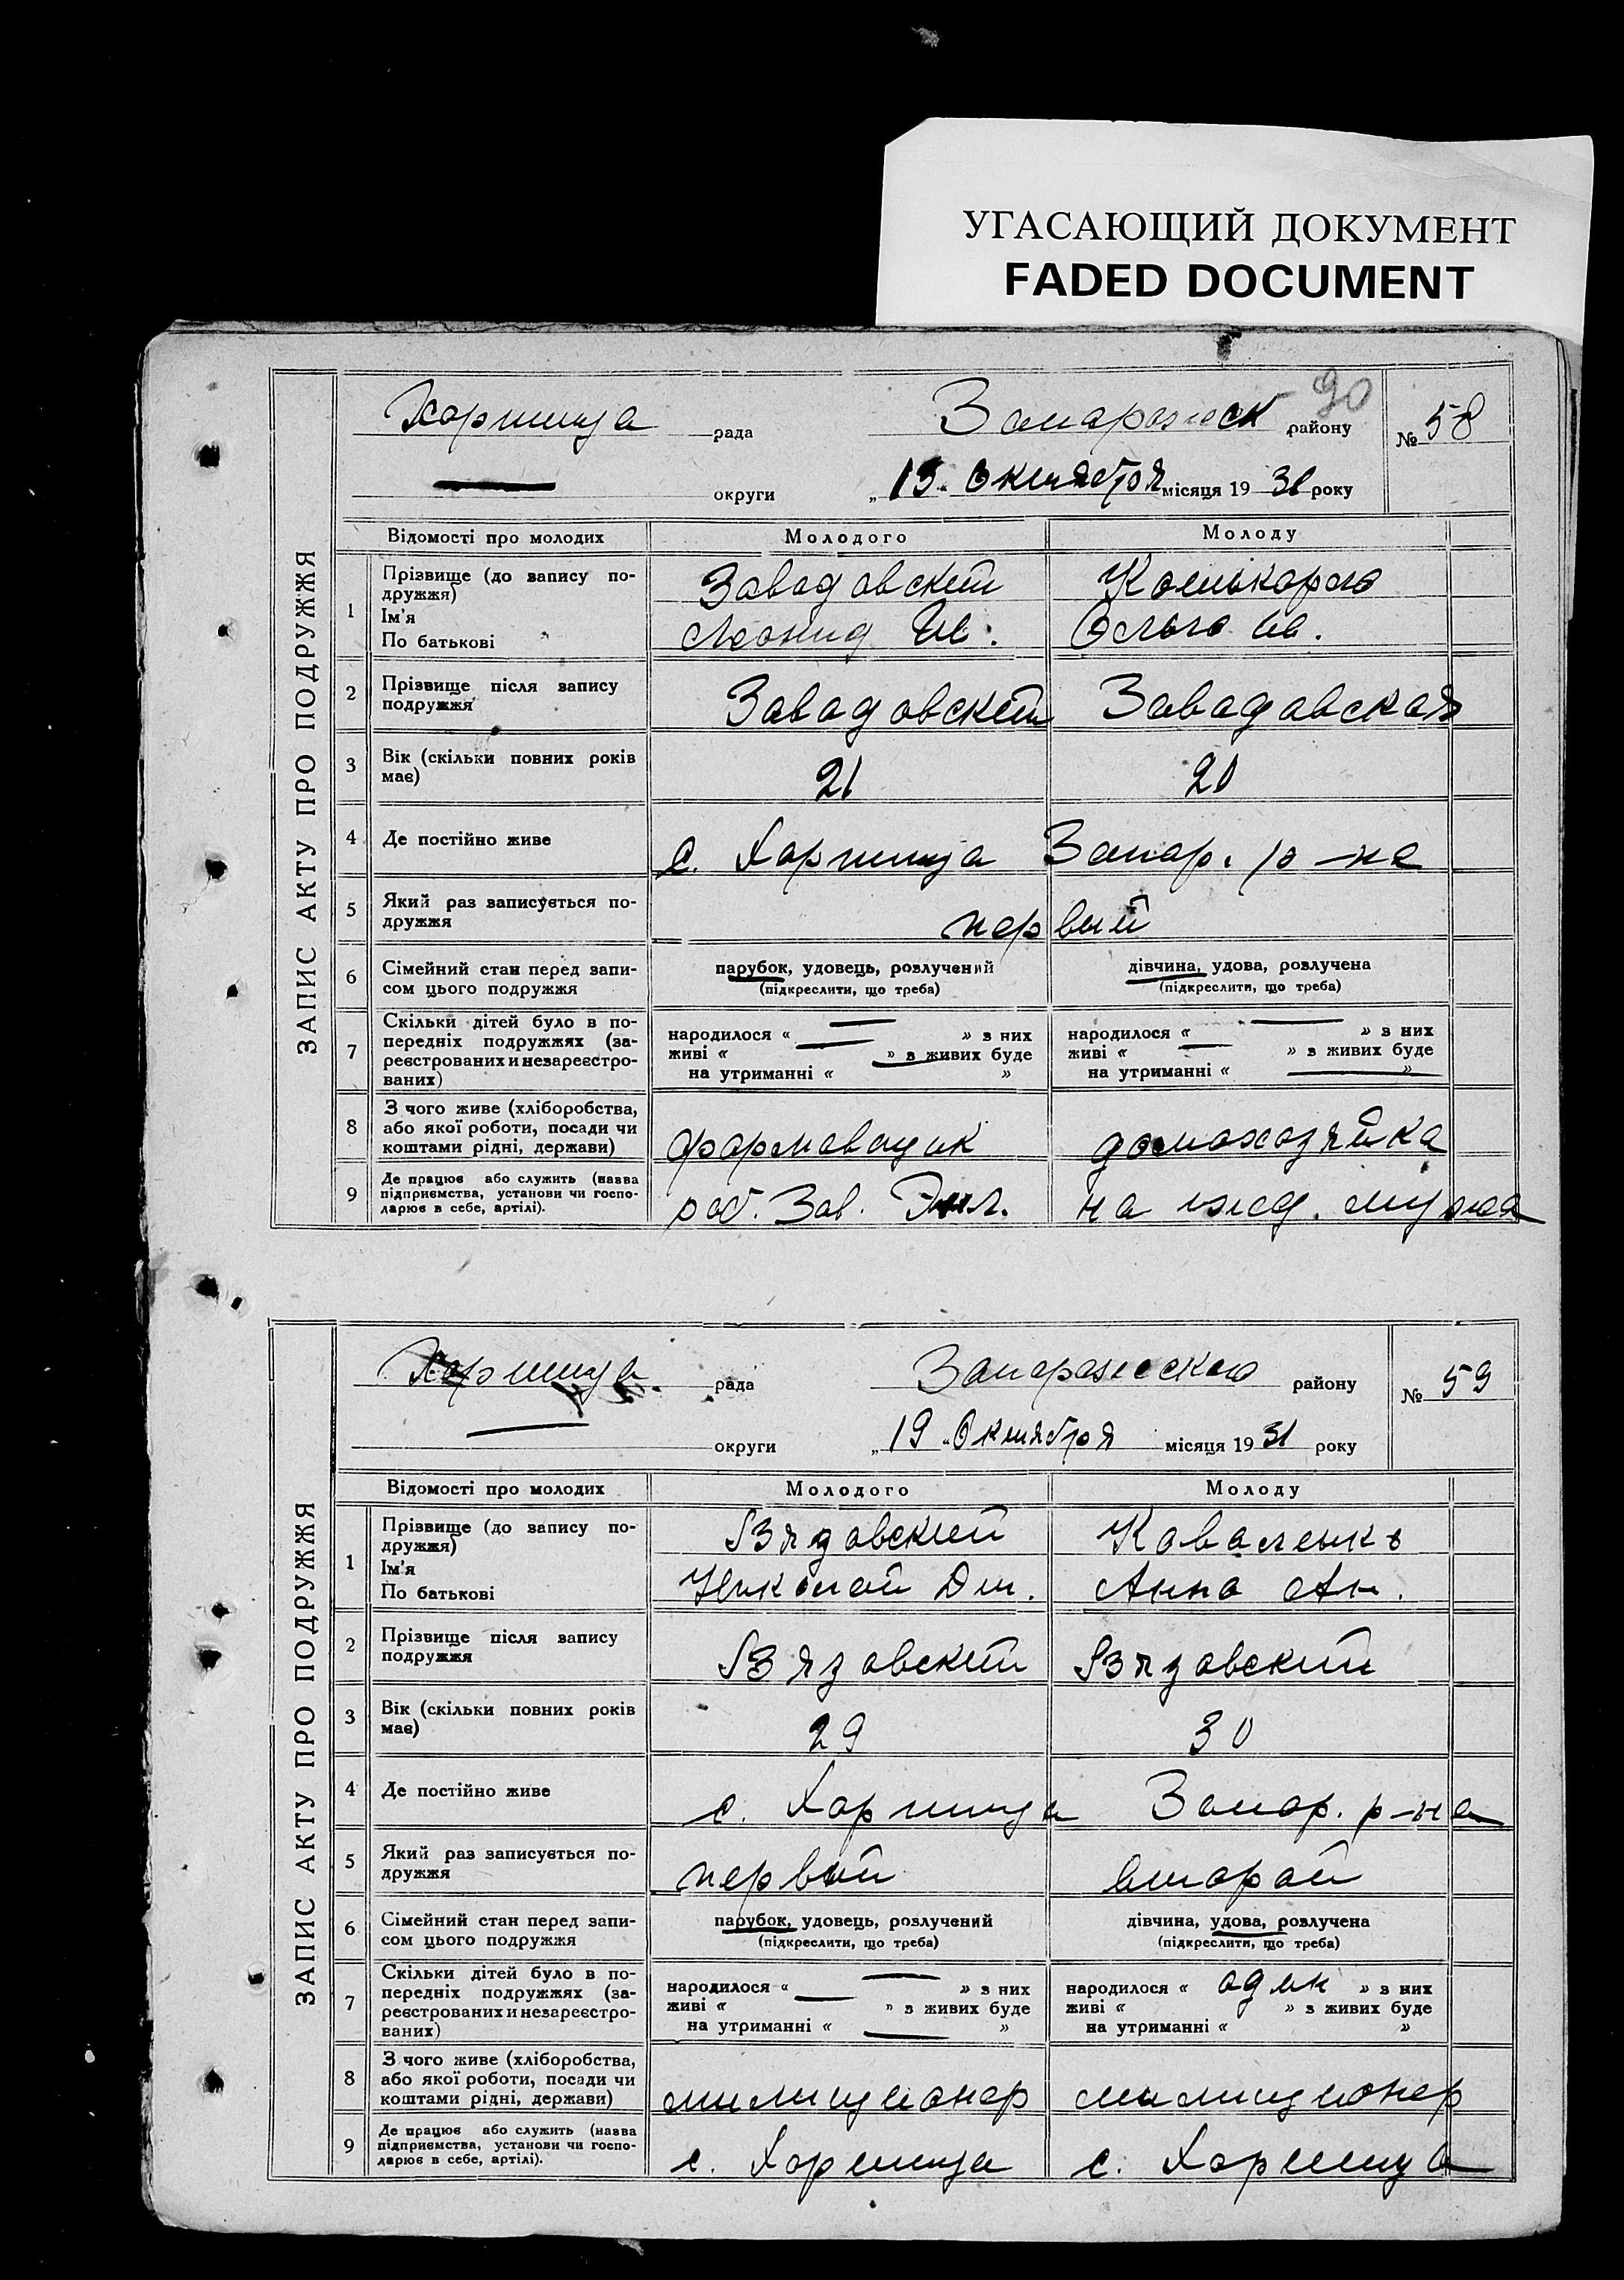 УГАСАЮЩИЙ ДОКУМЕНТ
FADED DOCUMENT
90
ЗАПИС АКТУ ПРО ПОДРУЖЖЯ
Хортица рада Запорожск району № 58
округи „ 13 „ Октября місяця 19 31 року
Відомості про молодих Молодого Молоду
1 Прізвище (до запису по-
дружжя) Завадовский
Ім'я
По батькові Леонид Ив. Ольга Ив.
2 Прізвище після запису
подружжя Завадовский Завадавская
3 Вік (скільки повних років
має) 21 20
4 Де постійно живе с. Хортица Запор. р-на
5 Який раз записується по-
дружжя первый
6 Сімейний стан перед запи-
сом цього подружжя парубок, удовець, розлучений дівчина, удова, розлучена
(підкреслити, що треба) (підкреслити, що треба)
7 Скільки дітей було в по-
передніх подружжях (за-
реєстрованих и незареєстро-
ваних)
народилося « » з них народилося « » з них
живі « » з живих буде живі « » з живих буде
на утриманні « » на утриманні « »
8 З чого живе (хліборобства,
або якої роботи, посади чи
коштами рідні, держави) формовщик домохозяйка
9 Де працює або служить (назва
підприємства, установи чи госпо-
дарює в себе, артілі). раб. Зав. на ижд. мужа
ЗАПИС АКТУ ПРО ПОДРУЖЖЯ
Хортица рада Запорожского району № 59
округи „ 19 „ Октября місяця 19 31 року
Відомості про молодих Молодого Молоду
1 Прізвище (до запису по-
дружжя) Вязовский Коваленко
Ім'я
По батькові Николай Дм. Анна Ан.
2 Прізвище після запису
подружжя Вязовский Вязовский
3 Вік (скільки повних років
має) 29 30
4 Де постійно живе с. Хортица Запор. р-на
5 Який раз записується по-
дружжя первый второй
6 Сімейний стан перед запи-
сом цього подружжя парубок, удовець, розлучений дівчина, удова, розлучена
(підкреслити, що треба) (підкреслити, що треба)
7 Скільки дітей було в по-
передніх подружжях (за-
реєстрованих и незареєстро-
ваних)
народилося « » з них народилося « один » з них
живі « » з живих буде живі « » з живих буде
на утриманні « » на утриманні « »
8 З чого живе (хліборобства,
або якої роботи, посади чи
коштами рідні, держави) милиционер милиционер
9 Де працює або служить (назва
підприємства, установи чи госпо-
дарює в себе, артілі). с. Хортица с. Хортица